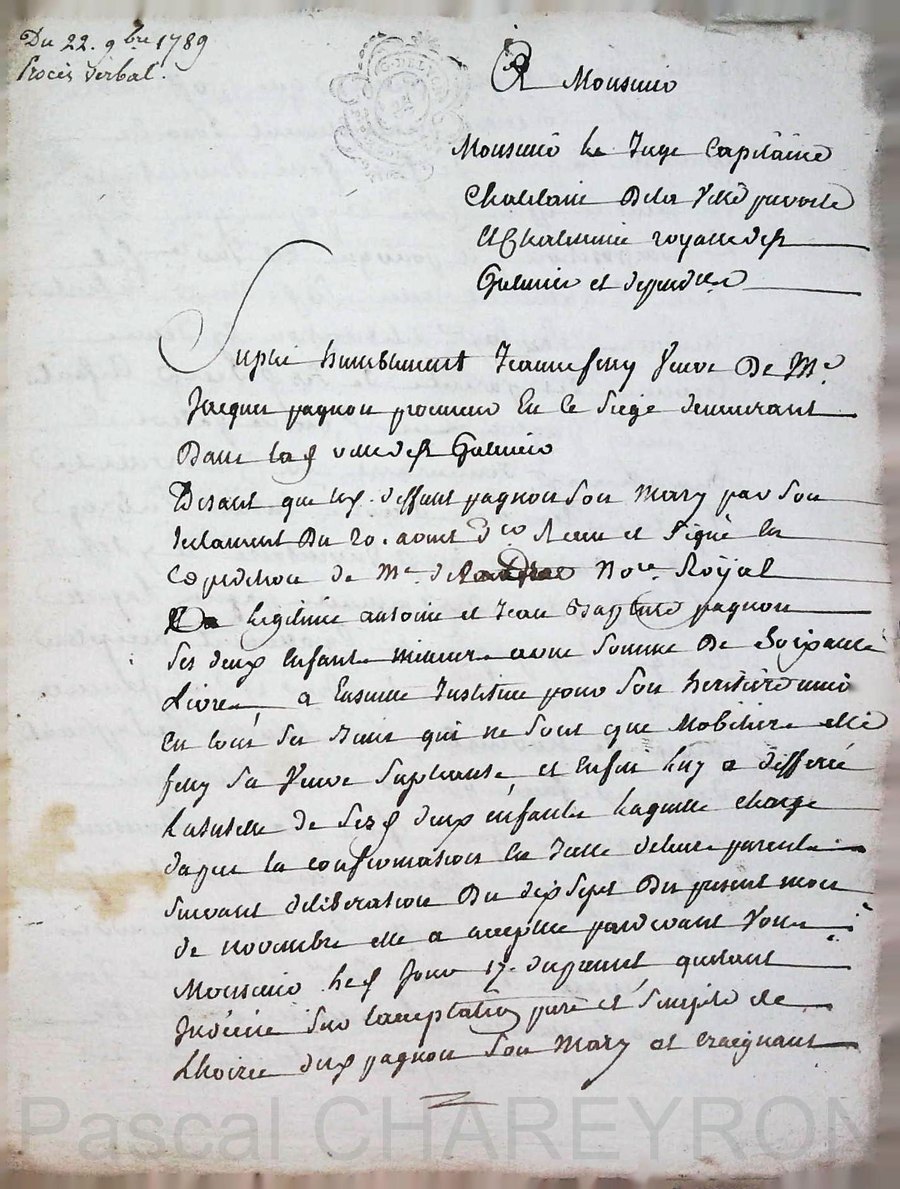 Du 22. 9bre 1789
Procès verbal.
A Monsieur
Monsieur le Juge Capitaine
Chatelain De la Ville prevoté
et Chatelenie royalle de st
Galmier et dependces
Suplie humblement Jeanne feny Veuve De Me
Jacques pagnon procureur En ce siege demeurant
Dans lad ville de st Galmier
Disant que led. deffunt pagnon son Mary par son
testament Du 20. aoust dr Receu et signé en
Expedition de Me Nore Royal
Legitime antoine et Jean Baptiste pagnon
ses deux Enfants mineurs a une somme De soixante
Livres a Ensuitte Institue pour son heritiere
En tous ses biens qui ne sont que Mobiliers elle
feny sa Veuve supliante et Enfin luy a differé
La tutelle de sesd deux enfants Laquelle charge
dapres la confirmation En Icelle de leurs parents
suivant deliberation Du dix sept Du present mois
de novembre elle a acceptée pardevant Vous
Monsieur led Jour 17. du present
sur Lacceptation pure et simple de
Lhoirie dud pagnon son Mary et craignant
Pascal CHAREYRON